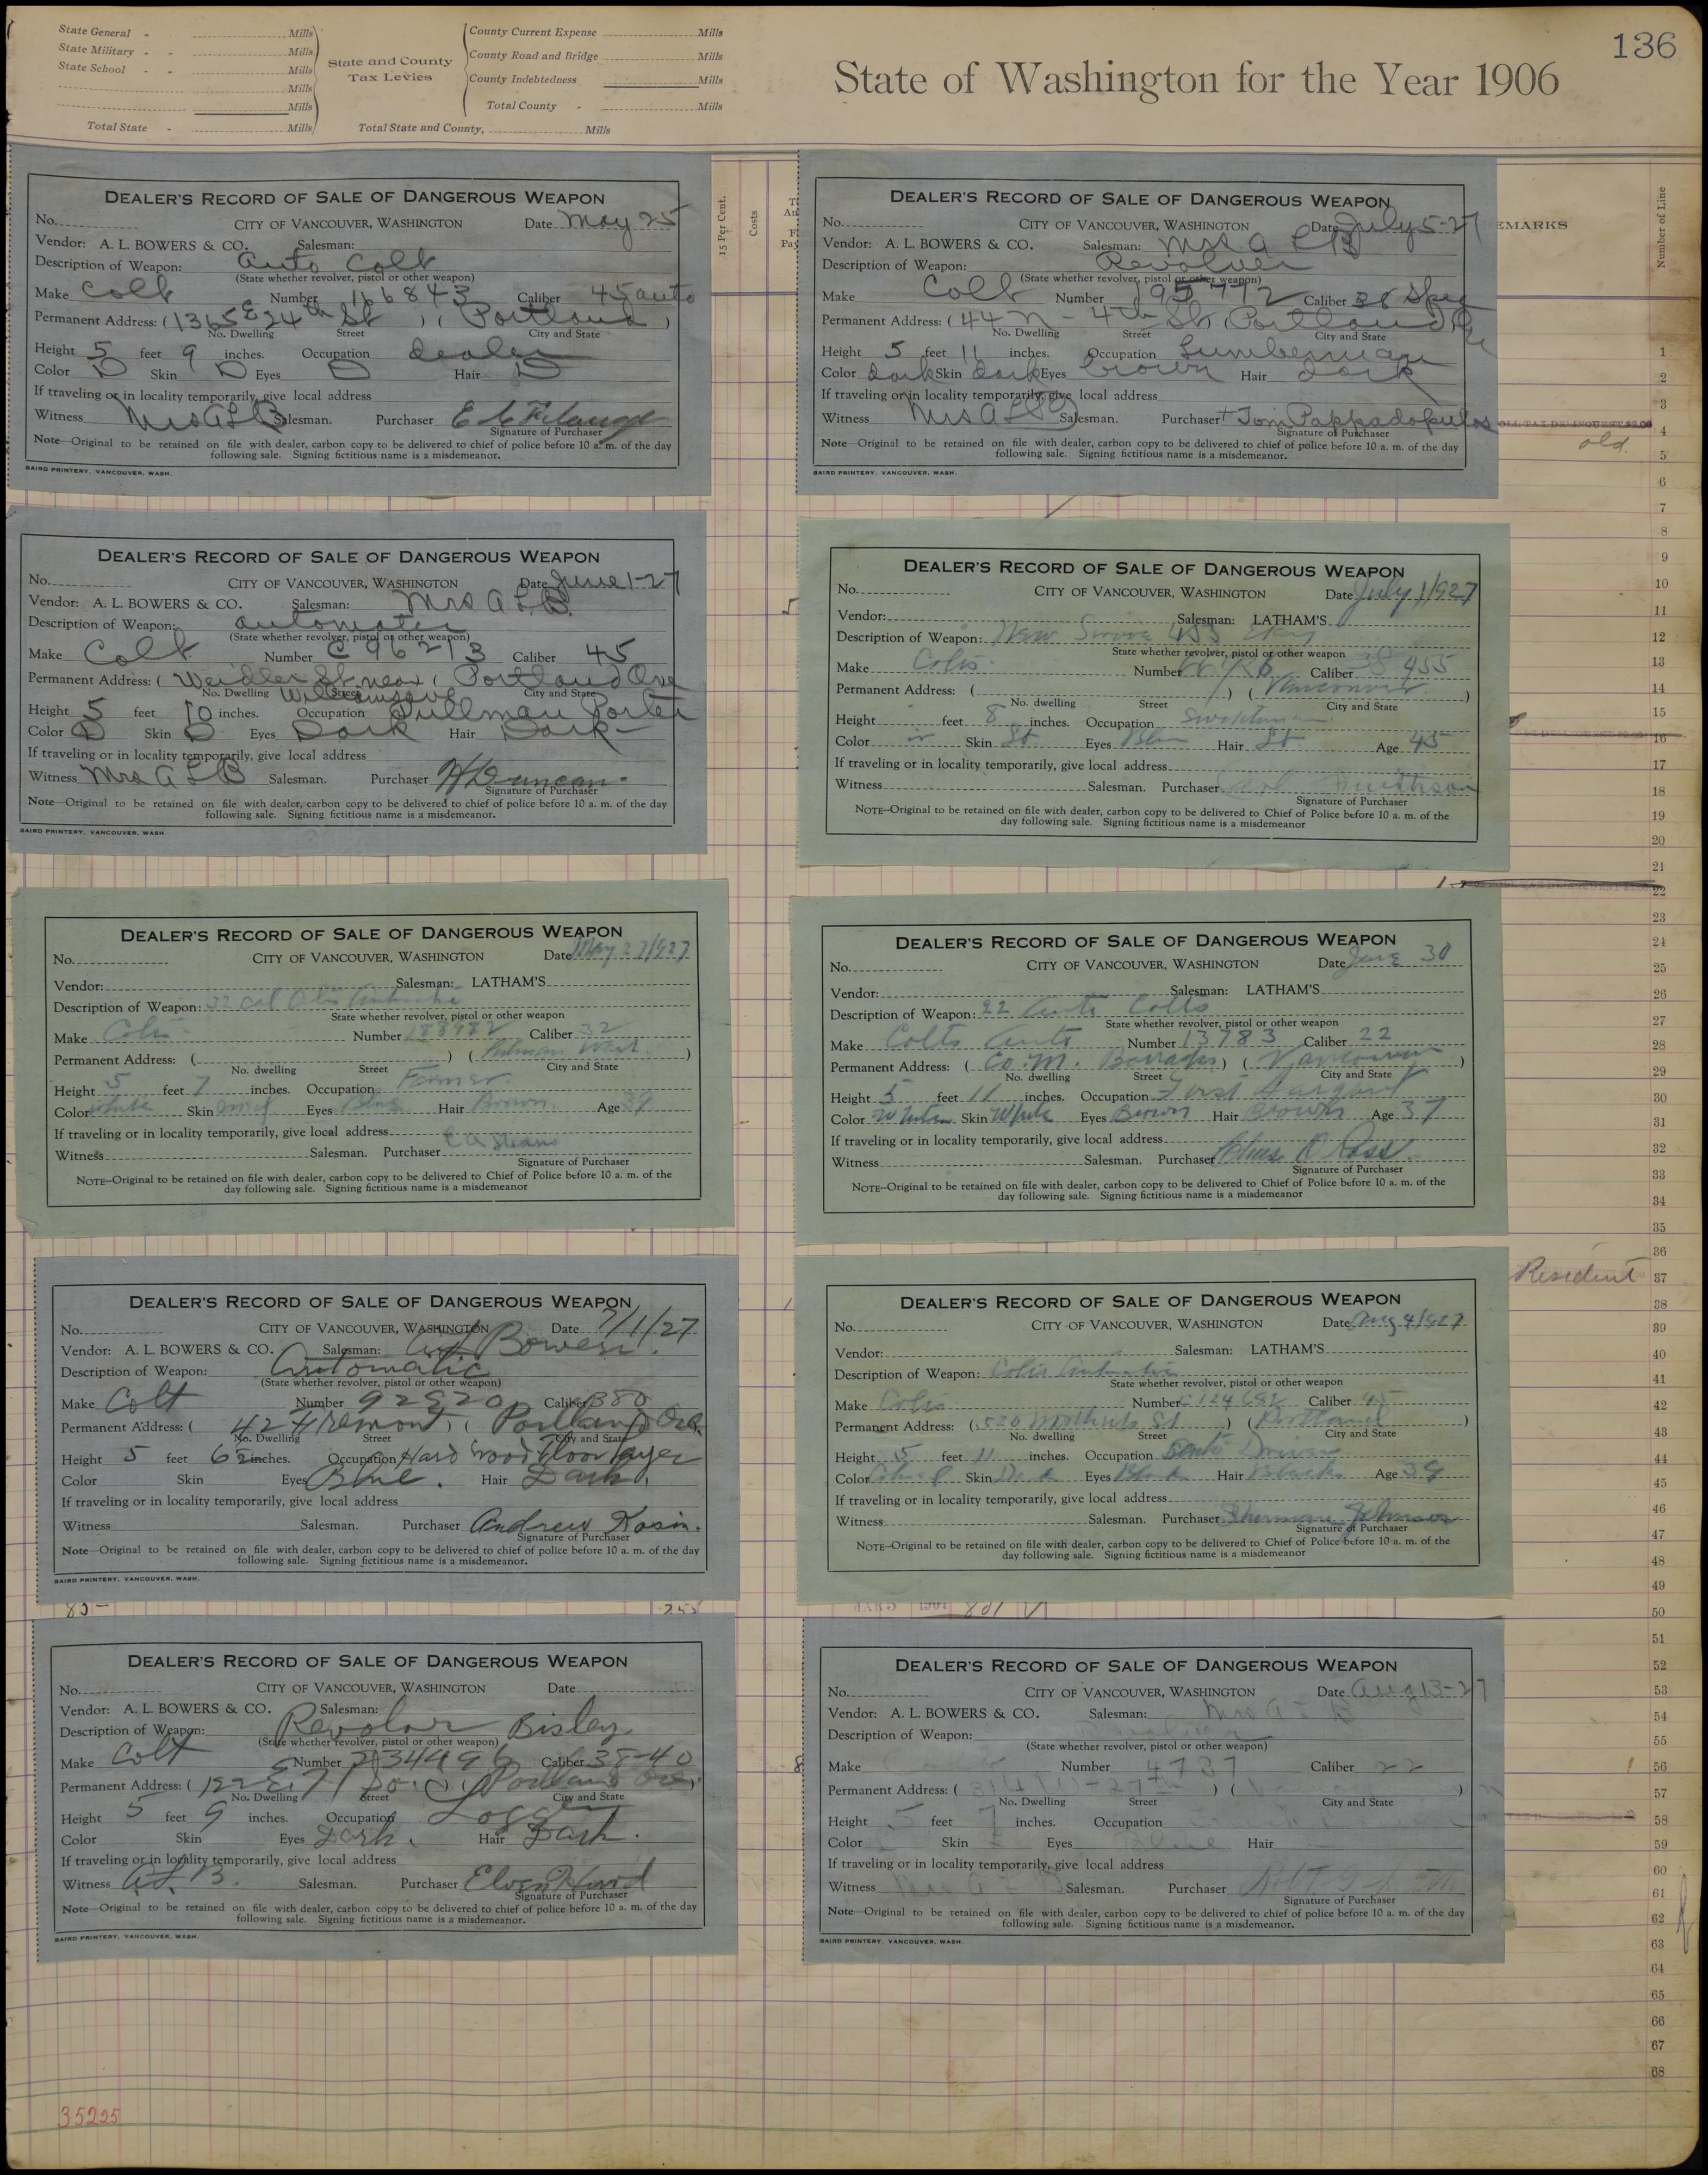 136
State General - Mills
State Military - - Mills
State School - - Mills
Mills
Mills
Total State - Mills
State and County
Tax Levies
County Current Expense Mills
County Road and Bridge Mills
County Indebtedness Mills
Total County - Mills
Total State and County, Mills
State of Washington for the Year 1906
15 Per Cent.
Costs
EMARKS
Number of Line
DEALER'S RECORD OF SALE OF DANGEROUS WEAPON
No. CITY OF VANCOUVER, WASHINGTON Date May 25
Vendor: A. L. BOWERS & CO. Salesman:
Description of Weapon: Auto Colt
(State whether revolver, pistol or other weapon)
Make Colt Number 166843 Caliber 45 auto
Permanent Address: (1365 E 24th St) (Portland)
No. Dwelling Street City and State
Height 5 feet 9 inches. Occupation dealer
Color D Skin D Eyes D Hair D
If traveling or in locality temporarily, give local address
Witness Mrs A L B Salesman. Purchaser
Signature of Purchaser
Note—Original to be retained on file with dealer, carbon copy to be delivered to chief of police before 10 a. m. of the day
following sale. Signing fictitious name is a misdemeanor.
BAIRD PRINTERY, VANCOUVER, WASH.
DEALER'S RECORD OF SALE OF DANGEROUS WEAPON
No. CITY OF VANCOUVER, WASHINGTON Date July 5-27
Vendor: A. L. BOWERS & CO. Salesman: Mrs A L B
Description of Weapon: Revolver
(State whether revolver, pistol or other weapon)
Make Colt Number 95772 Caliber 38 Spec
Permanent Address: (44 N - 4th St) (Portland Ore
No. Dwelling Street City and State
Height 5 feet 11 inches. Occupation Lumberman
Color dark Skin dark Eyes brown Hair dark
If traveling or in locality temporarily, give local address
Witness Mrs A L B Salesman. Purchaser + Tom Pappadopulos
Signature of Purchaser
Note—Original to be retained on file with dealer, carbon copy to be delivered to chief of police before 10 a. m. of the day
following sale. Signing fictitious name is a misdemeanor.
BAIRD PRINTERY, VANCOUVER, WASH.
old.
DEALER'S RECORD OF SALE OF DANGEROUS WEAPON
No. CITY OF VANCOUVER, WASHINGTON Date June 1-27
Vendor: A. L. BOWERS & CO. Salesman: Mrs A L B.
Description of Weapon: automatic
(State whether revolver, pistol or other weapon)
Make Colt Number C 96213 Caliber 45
Permanent Address: (Weidler St near (Portland Ore
No. Dwelling Williams ave Street City and State
Height 5 feet 10 inches. Occupation Pullman Porter
Color D Skin D Eyes Dark Hair Dark
If traveling or in locality temporarily, give local address
Witness Mrs A L B Salesman. Purchaser H Duncan.
Signature of Purchaser
Note—Original to be retained on file with dealer, carbon copy to be delivered to chief of police before 10 a. m. of the day
following sale. Signing fictitious name is a misdemeanor.
BAIRD PRINTERY, VANCOUVER, WASH.
DEALER'S RECORD OF SALE OF DANGEROUS WEAPON
No. CITY OF VANCOUVER, WASHINGTON Date July 1/1927
Vendor: Salesman: LATHAM'S
Description of Weapon: New
State whether revolver, pistol or other weapon
Make Colts. Number Caliber 455
Permanent Address: ( ) (Vancouver)
No. dwelling Street City and State
Height feet 8 inches. Occupation
Color Skin Eyes Blue Hair Age 45
If traveling or in locality temporarily, give local address
Witness Salesman. Purchaser
Signature of Purchaser
NOTE—Original to be retained on file with dealer, carbon copy to be delivered to Chief of Police before 10 a. m. of the
day following sale. Signing fictitious name is a misdemeanor
DEALER'S RECORD OF SALE OF DANGEROUS WEAPON
No. CITY OF VANCOUVER, WASHINGTON Date May 27/1927
Vendor: Salesman: LATHAM'S
Description of Weapon: 32 Cal Colts Automatic
State whether revolver, pistol or other weapon
Make Colts Number Caliber 32
Permanent Address: ( ) (Pulman Wash.)
No. dwelling Street City and State
Height 5 feet 7 inches. Occupation Farmer.
Color white Skin Eyes Blue Hair Brown Age 39
If traveling or in locality temporarily, give local address
Witness Salesman. Purchaser
Signature of Purchaser
NOTE—Original to be retained on file with dealer, carbon copy to be delivered to Chief of Police before 10 a. m. of the
day following sale. Signing fictitious name is a misdemeanor
DEALER'S RECORD OF SALE OF DANGEROUS WEAPON
No. CITY OF VANCOUVER, WASHINGTON Date June 30
Vendor: Salesman: LATHAM'S
Description of Weapon: 22 Auto Colts
State whether revolver, pistol or other weapon
Make Colts Auto Number 13783 Caliber 22
Permanent Address: (Co. M. Barracks) (Vancouver)
No. dwelling Street City and State
Height 5 feet 11 inches. Occupation First Sargent
Color White Skin White Eyes Brown Hair Brown Age 37
If traveling or in locality temporarily, give local address
Witness Salesman. Purchaser Ross
Signature of Purchaser
NOTE—Original to be retained on file with dealer, carbon copy to be delivered to Chief of Police before 10 a. m. of the
day following sale. Signing fictitious name is a misdemeanor
Resident
DEALER'S RECORD OF SALE OF DANGEROUS WEAPON
No. CITY OF VANCOUVER, WASHINGTON Date 7/1/27
Vendor: A. L. BOWERS & CO. Salesman: Bowers.
Description of Weapon: Automatic
(State whether revolver, pistol or other weapon)
Make Colt Number 92920 Caliber 380
Permanent Address: (42 Fremont, (Portland Ore.
No. Dwelling Street City and State
Height 5 feet 6½ inches. Occupation Hard wood floor layer
Color Skin Eyes Blue. Hair Dark.
If traveling or in locality temporarily, give local address
Witness Salesman. Purchaser Andrew Kosin.
Signature of Purchaser
Note—Original to be retained on file with dealer, carbon copy to be delivered to chief of police before 10 a. m. of the day
following sale. Signing fictitious name is a misdemeanor.
BAIRD PRINTERY, VANCOUVER, WASH.
DEALER'S RECORD OF SALE OF DANGEROUS WEAPON
No. CITY OF VANCOUVER, WASHINGTON Date Aug 4/1927
Vendor: Salesman: LATHAM'S
Description of Weapon: Colts Automatic
State whether revolver, pistol or other weapon
Make Colts Number C124692 Caliber 45
Permanent Address: (520 St) (Portland)
No. dwelling Street City and State
Height 5 feet 11 inches. Occupation Auto Driver
Color Skin Eyes Black Hair Black Age 39
If traveling or in locality temporarily, give local address
Witness Salesman. Purchaser Sherman Johnson
Signature of Purchaser
NOTE—Original to be retained on file with dealer, carbon copy to be delivered to Chief of Police before 10 a. m. of the
day following sale. Signing fictitious name is a misdemeanor
DEALER'S RECORD OF SALE OF DANGEROUS WEAPON
No. CITY OF VANCOUVER, WASHINGTON Date
Vendor: A. L. BOWERS & CO. Salesman:
Description of Weapon: Revolar Bisley
(State whether revolver, pistol or other weapon)
Make Colt Number 234496 Caliber 38-40
Permanent Address: (122 E. 71 (Portland Ore.
No. Dwelling Street City and State
Height 5 feet 9 inches. Occupation Logger
Color Skin Eyes Dark. Hair Dark.
If traveling or in locality temporarily, give local address
Witness A. L. B. Salesman. Purchaser Elven Hurd
Signature of Purchaser
Note—Original to be retained on file with dealer, carbon copy to be delivered to chief of police before 10 a. m. of the day
following sale. Signing fictitious name is a misdemeanor.
BAIRD PRINTERY, VANCOUVER, WASH.
DEALER'S RECORD OF SALE OF DANGEROUS WEAPON
No. CITY OF VANCOUVER, WASHINGTON Date Aug 13-27
Vendor: A. L. BOWERS & CO. Salesman: Mrs A L B
Description of Weapon:
(State whether revolver, pistol or other weapon)
Make Number 4737 Caliber 22
Permanent Address: ( 27th ) ( )
No. Dwelling Street City and State
Height 5 feet 7 inches. Occupation
Color Skin Eyes Blue Hair
If traveling or in locality temporarily, give local address
Witness Mrs A L B Salesman. Purchaser
Signature of Purchaser
Note—Original to be retained on file with dealer, carbon copy to be delivered to chief of police before 10 a. m. of the day
following sale. Signing fictitious name is a misdemeanor.
BAIRD PRINTERY, VANCOUVER, WASH.
1
2
3
4
5
6
7
8
9
10
11
12
13
14
15
16
17
18
19
20
21
22
23
24
25
26
27
28
29
30
31
32
33
34
35
36
37
38
39
40
41
42
43
44
45
46
47
48
49
50
51
52
53
54
55
56
57
58
59
60
61
62
63
64
65
66
67
68
35225